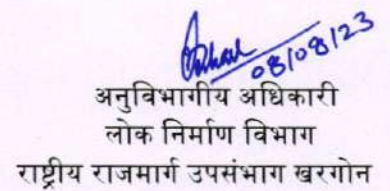 08/08/23
अनुविभागीय अधिकारी
लोक निर्माण विभाग
राष्ट्रीय राजमार्ग उपसंभाग खरगोन